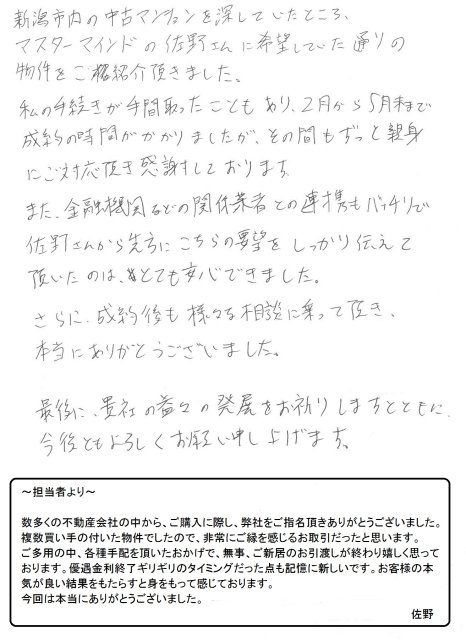 新潟市内の中古マンションを探していたところ、
マスターマインドの佐野さんに希望していた通りの
物件をご紹介頂きました。
私の手続きが手間取ったこともあり、2月から5月末まで
成約の時間がかかりましたが、その間もずっと親身
にご対応頂き感謝しております。
また、金融機関などの関係業者との連携もバッチリで
佐野さんから先方にこちらの要望をしっかり伝えて
頂いたのは、とても安心できました。
さらに、成約後も様々な相談に乗って頂き、
本当にありがとうございました。
最後に、貴社の益々の発展をお祈りしますとともに、
今後ともよろしくお願い申し上げます。
～担当者より～
数多くの不動産会社の中から、ご購入に際し、弊社をご指名頂きありがとうございました。
複数買い手の付いた物件でしたので、非常にご縁を感じるお取引だったと思います。
ご多用の中、各種手配を頂いたおかげで、無事、ご新居のお引渡しが終わり嬉しく思って
おります。優遇金利終了ギリギリのタイミングだった点も記憶に新しいです。お客様の本
気が良い結果をもたらすと身をもって感じております。
今回は本当にありがとうございました。
佐野